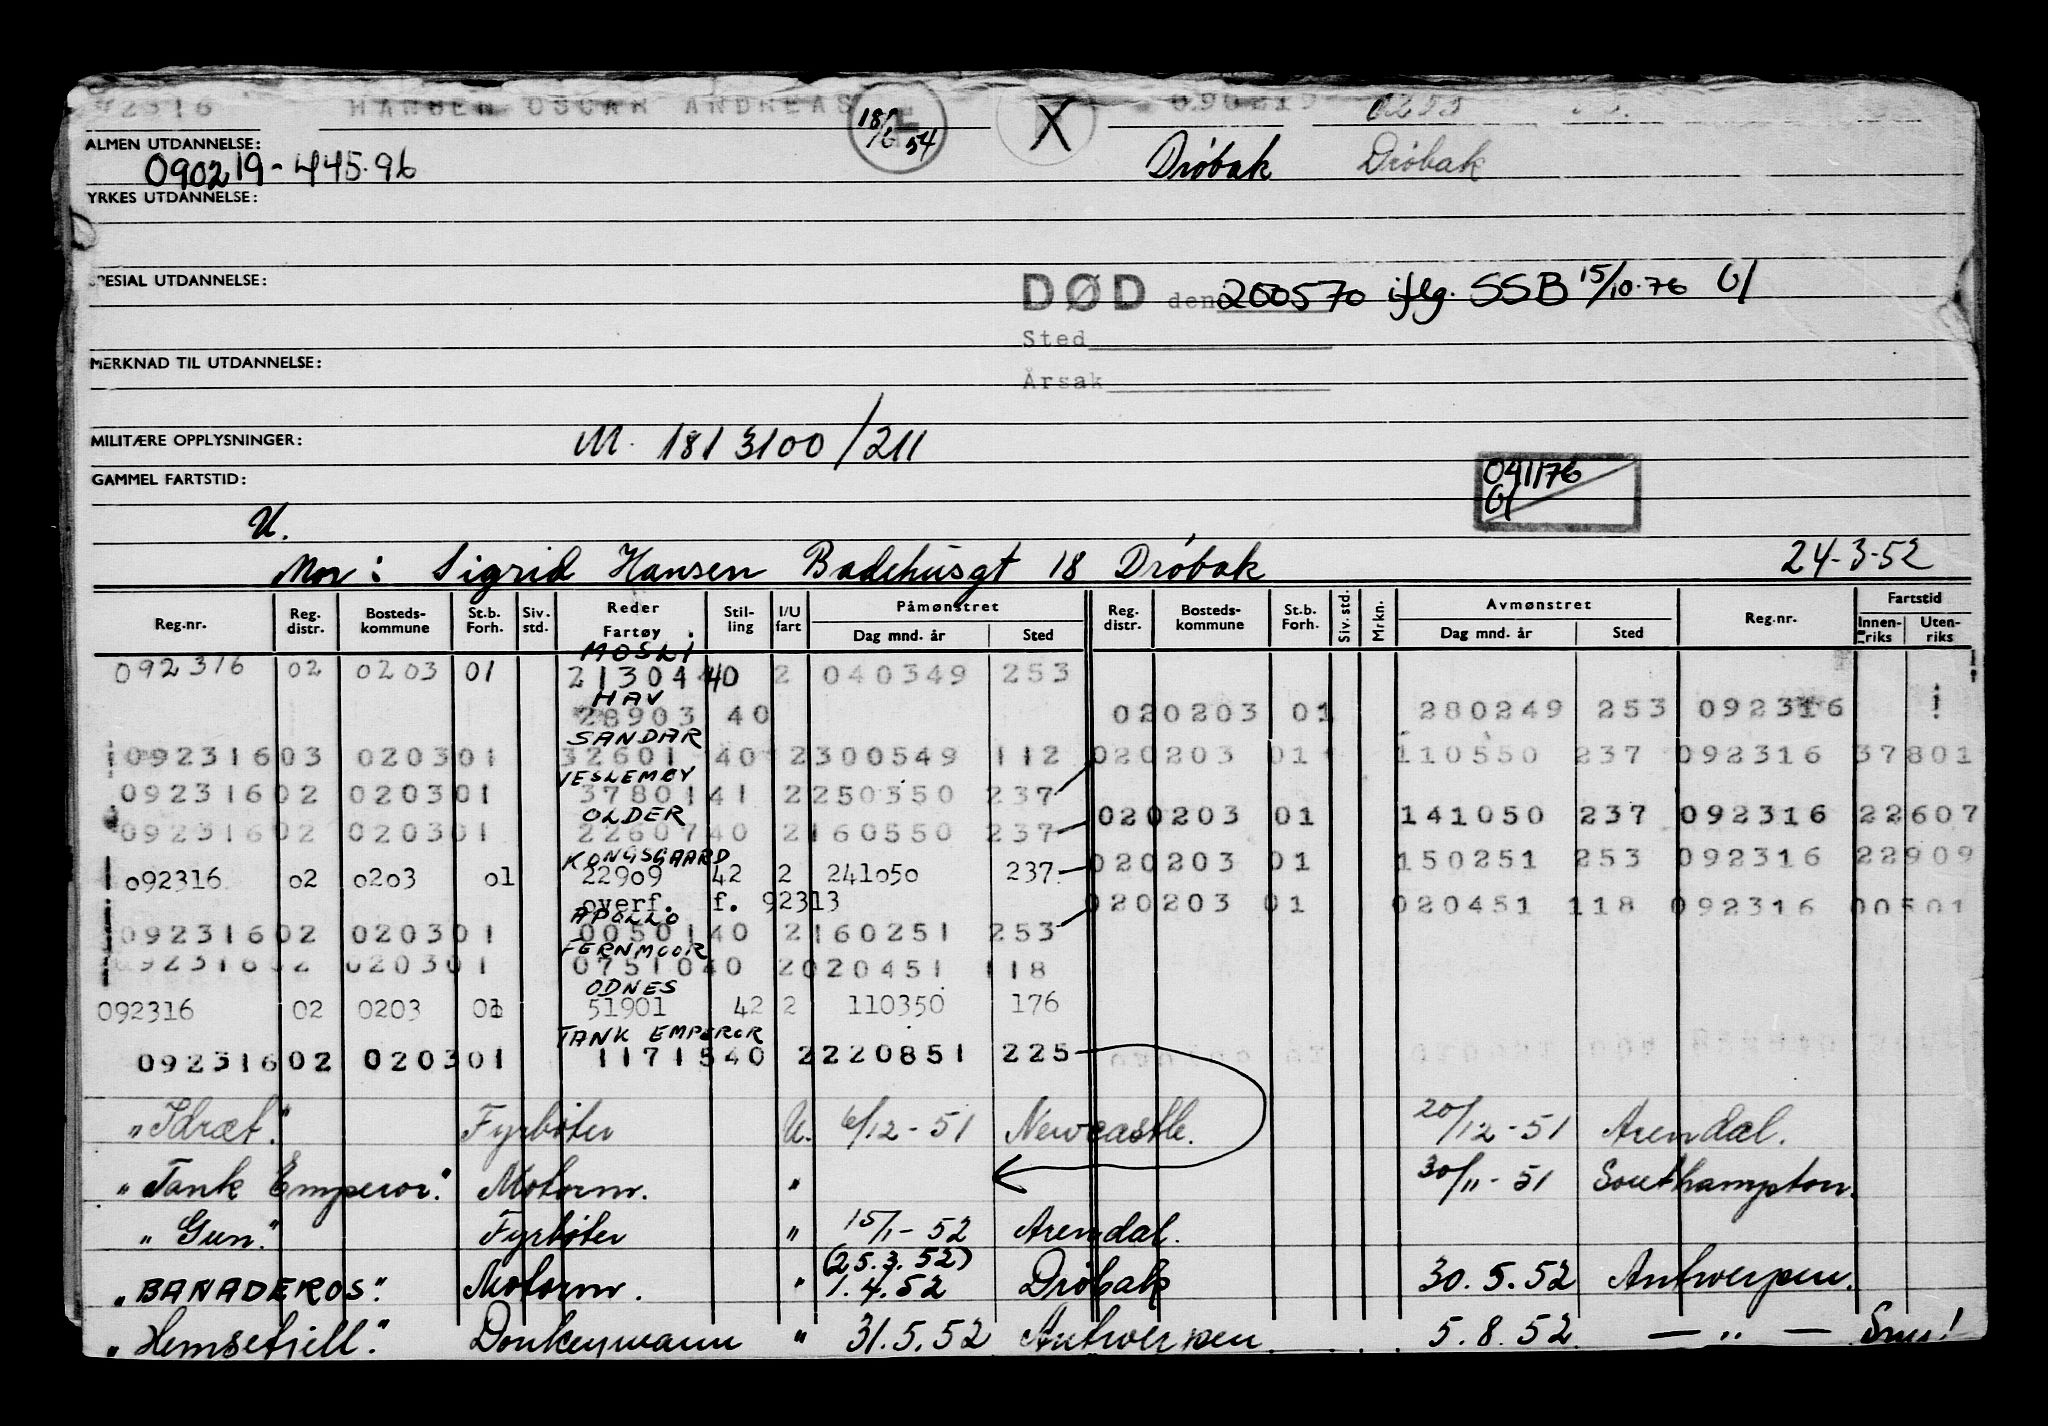 92316 HANSEN OSCAR ANDREAS 18/6 54 X 090219 0253
ALMEN UTDANNELSE: 090219-445.96 Drøbak Drøbak
YRKES UTDANNELSE:
SPESIAL UTDANNELSE: DØD den 200570 iflg. SSB 15/10.76 Gl
Sted
MERKNAD TIL UTDANNELSE: Årsak
MILITÆRE OPPLYSNINGER: M. 1813100/211
GAMMEL FARTSTID: 041176
Gl
U.
Mor: Sigrid Hansen Badehusgt 18 Drøbak 24-3-52
Reg.nr. Reg. distr. Bosteds- kommune St.b. Forh. Siv. std. Reder Fartøy Stil- ling I/U fart Påmønstret Dag mnd. år Sted Reg. distr. Bosteds- kommune St.b. Forh. Siv. std. Mrkn. Avmønstret Dag mnd. år Sted Reg.nr. Fartstid Innen- riks Uten- riks
MOSLI
092316 02 0203 01 21304 40 2 040349 253
HAV
28903 40 020203 01 280249 253 092316
SANDAR
092316 03 0203 01 32601 40 2 300549 112 020203 01 110550 237 092316 37801
VESLEMØY
092316 02 0203 01 37801 41 2 250350 237
OLDER 020203 01 141050 237 092316 22607
092316 02 0203 01 22607 40 2 160550 237
KONGSGAARD 020203 01 150251 253 092316 22909
092316 02 0203 01 22909 42 2 241050 237
overf. f. 92313 020203 01 020451 118 092316 00501
APOLLO
092316 02 0203 01 00501 40 2 160251 253
FERNMOOR
092316 02 0203 01 07510 40 2 020451 118
ODNES
092316 02 0203 01 51901 42 2 110350 176
TANK EMPEROR
092316 02 0203 01 11715 40 2 220851 225
"Idræt." Fyrbøter U. 6/12-51 Newcastle. 20/12-51 Arendal.
"Tank Emperor." Motorm. " 30/11-51 Southampton.
"Gun." Fyrbøter " 15/1-52 Arendal.
(25.3.52)
"BANADEROS." Motorm. " 1.4.52 Drøbak 30.5.52 Antwerpen.
"Hemsefjell." Donkeymann " 31.5.52 Antwerpen. 5.8.52 — " — Snu!